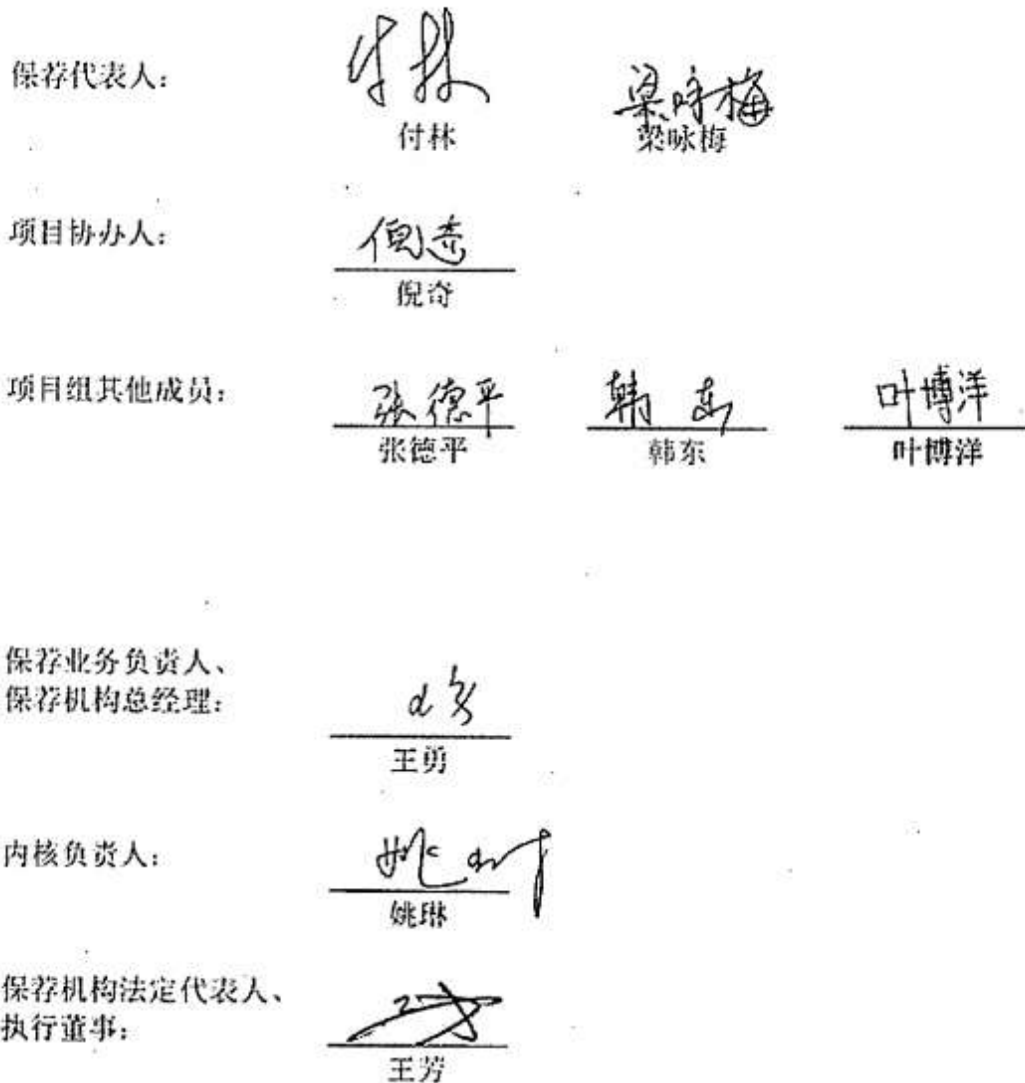 保荐代表人：
付林 梁咏梅
付林 梁咏梅
项目协办人：
倪奇
倪奇
项目组其他成员：
张德平 韩东 叶博洋
张德平 韩东 叶博洋
保荐业务负责人、
保荐机构总经理：
王勇
内核负责人：
姚琳
保荐机构法定代表人、
执行董事：
王芳